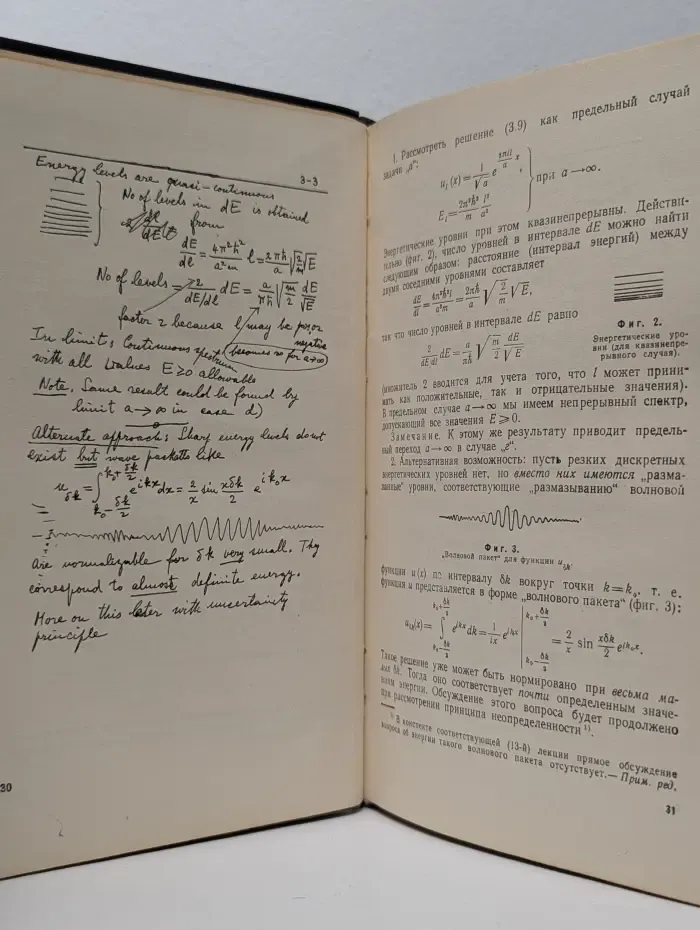 Energy levels are quasi-continuous 3-3
No of levels in dE is obtained
from
dE/dl = 4π²ħ²/a²m l = 2πħ/a √(2/m) √E
No of levels = 2/(dE/dl) dE = a/πħ √(m/2) dE/√E
factor 2 because l may be pos or
negative
In limit; Continuous spectrum (becomes ∞ for a→∞)
with all values E≥0 allowable
Note. Same result could be found by
limit a→∞ in case d)
Alternate approach: Sharp energy levels do not
exist but wave packetts like
u δk = ∫ k₀-δk/2 k₀+δk/2 e^{ikx} dx = 2/x sin xδk/2 e^{ik₀x}
are normalizable for δk very small. They
correspond to almost definite energy.
More on this later with uncertainty
principle
30
1. Рассмотреть решение (3.9) как предельный случай
задачи „a“:
u_l(x) = 1/√a e^{2πil/a x},
E_l = 2π²ħ²/m l²/a²
при a→∞.
Энергетические уровни при этом квазинепрерывны. Действи-
тельно (фиг. 2), число уровней в интервале dE можно найти
следующим образом: расстояние (интервал энергий) между
двумя соседними уровнями составляет
dE/dl = 4π²ħ²l/a²m = 2πħ/a √(2/m) √E,
так что число уровней в интервале dE равно
2/(dE/dl) dE = a/πħ √(m/2) dE/√E
Фиг. 2.
Энергетические уро-
вни (для квазинепре-
рывного случая).
(множитель 2 вводится для учета того, что l может прини-
мать как положительные, так и отрицательные значения).
В предельном случае a→∞ мы имеем непрерывный спектр,
допускающий все значения E≥0.
Замечание. К этому же результату приводит предель-
ный переход a→∞ в случае „е“.
2. Альтернативная возможность: пусть резких дискретных
энергетических уровней нет, но вместо них имеются „разма-
занные“ уровни, соответствующие „размазыванию“ волновой
Фиг. 3.
„Волновой пакет“ для функции u_δk.
функции u(x) по интервалу δk вокруг точки k=k₀, т. е.
функция u представляется в форме „волнового пакета“ (фиг. 3):
u_δk(x) = ∫ k₀-δk/2 k₀+δk/2 e^{ikx} dk = 1/ix e^{ikx} | k₀-δk/2 k₀+δk/2 = 2/x sin xδk/2 e^{ik₀x}.
Такое решение уже может быть нормировано при весьма ма-
лых δk. Тогда оно соответствует почти определенным значе-
ниям энергии. Обсуждение этого вопроса будет продолжено
при рассмотрении принципа неопределенности ¹⁾.
¹⁾ В конспекте соответствующей (13-й) лекции прямое обсуждение
вопроса об энергии такого волнового пакета отсутствует.— Прим. ред.
31